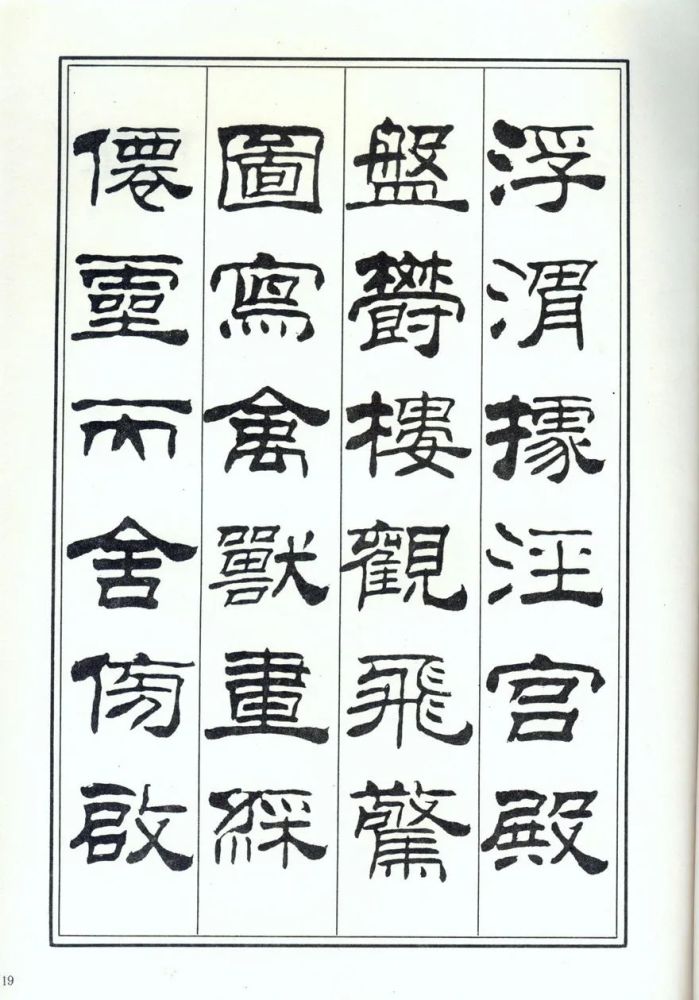 浮渭據泾宮殿
盤欝樓觀飛驚
圖寫禽獸畫綵
僊靈丙舍傍啟
19